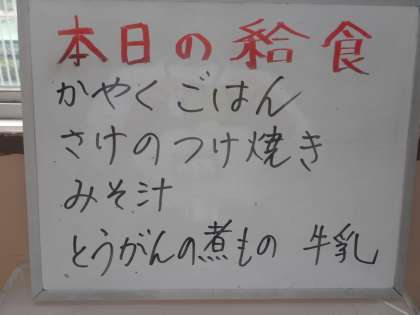 本日の給食
かやくごはん
さけのつけ焼き
みそ汁
とうがんの煮もの 牛乳